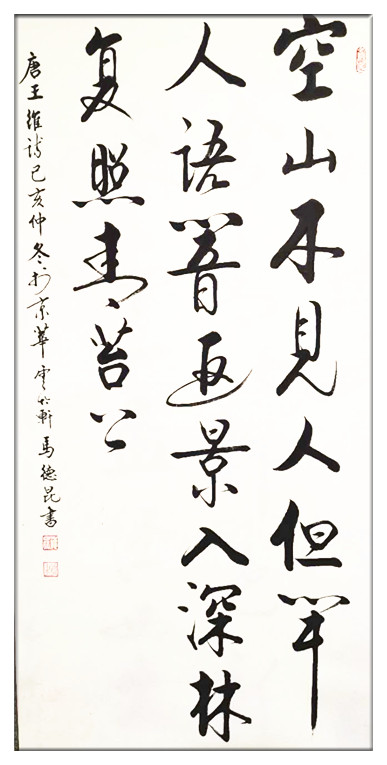 空山不見人但聞
人語響返景入深林
复照青苔上
唐王維詩己亥仲冬於京華雲軒馬德昆書